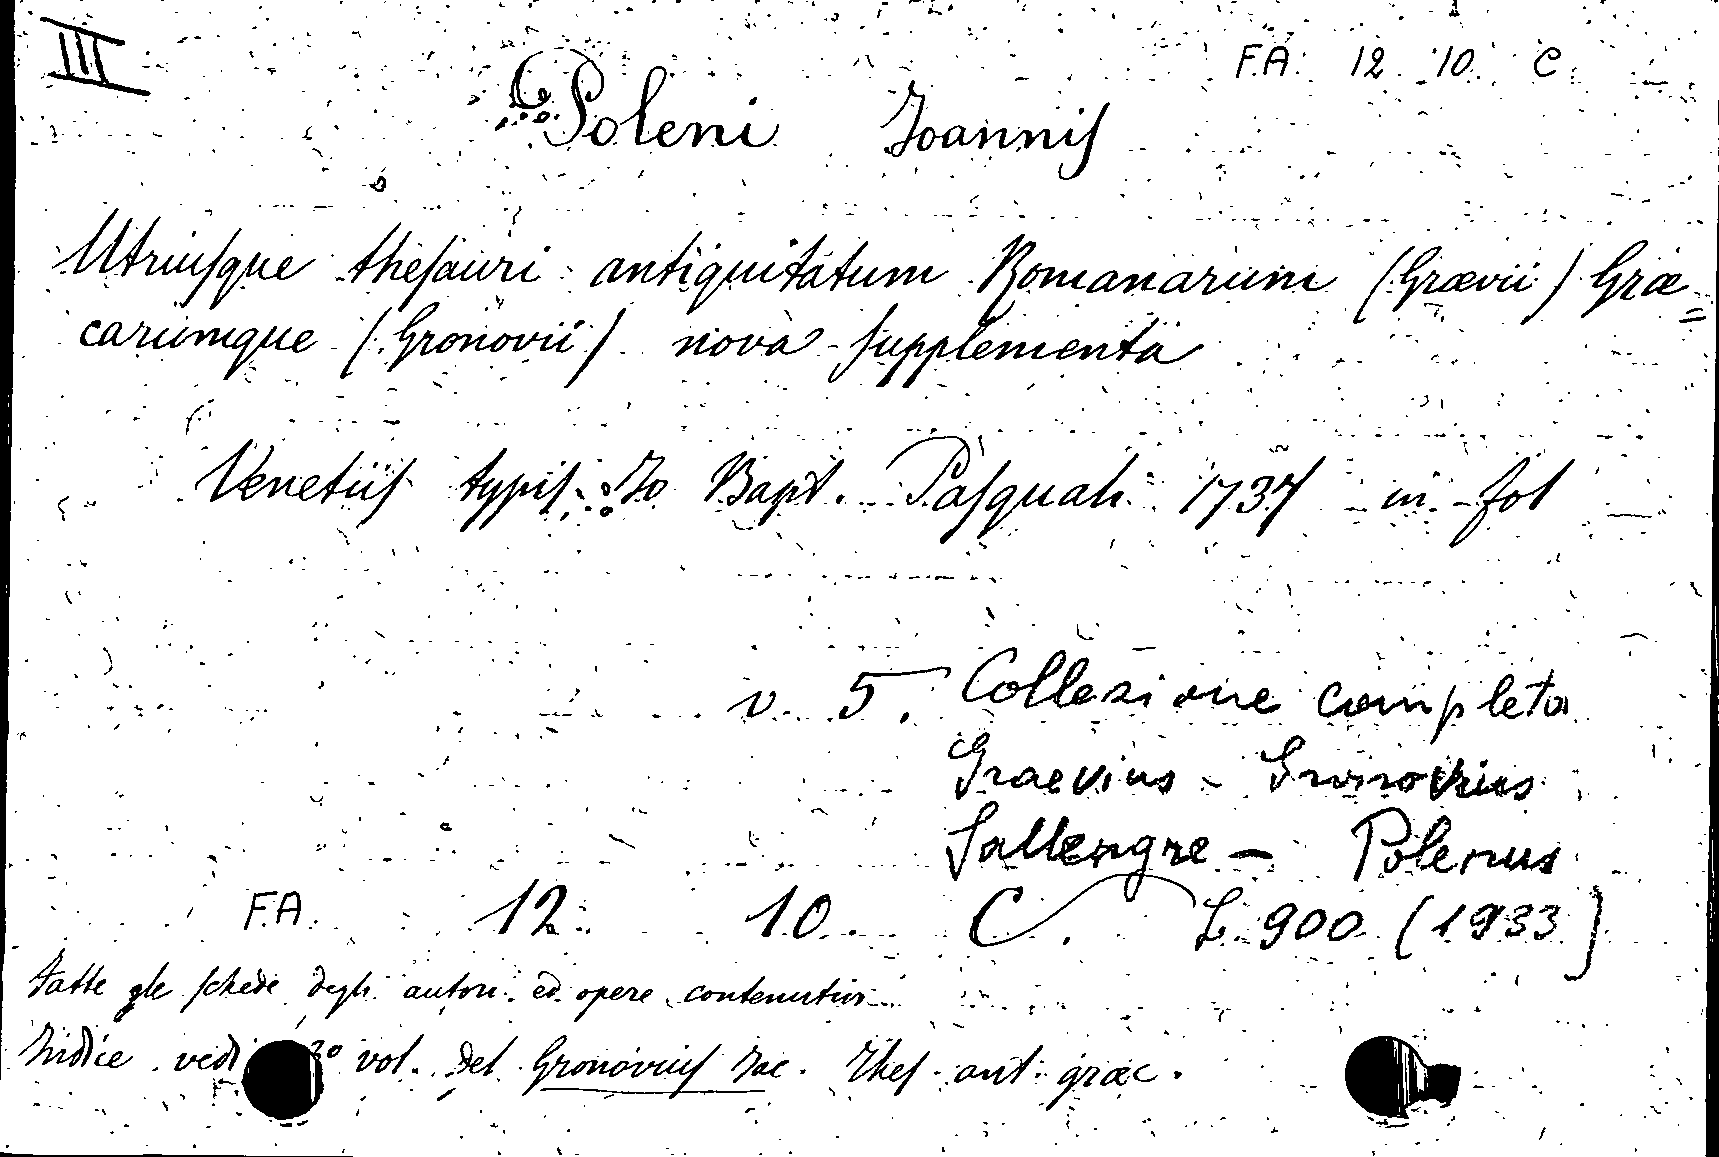 III
F.A. 12 10 C
Poleni Joannis
Utriusque thesauri antiquitatum Romanarum (Grævii) Græ=
carumque (Gronovii) nova supplementa
Venetiis typis Jo Bapt. Pasquali 1737 in fol
v. 5. Collezione completa
Graevius - Gronovius
Sallengre - Polenus
F.A. 12 10 C. L. 900 (1933)
Fatte gle schede degli autori ed opere contenutivi
Indice vedi 3º vol. del Gronovius Jac. Thes. ant. græc.